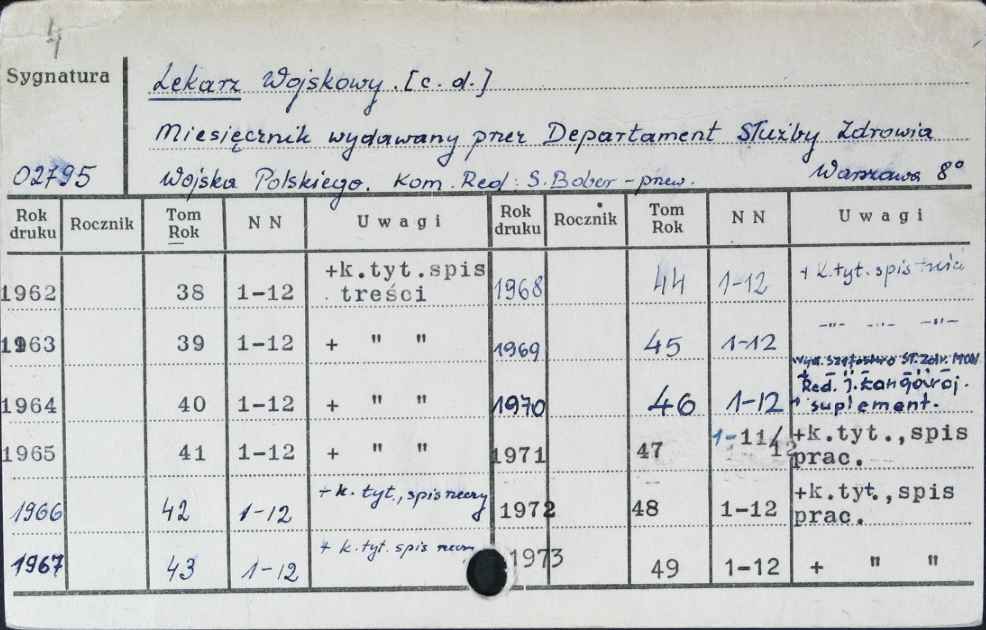 4
Sygnatura
Lekarz Wojskowy. [c. d.]
Miesięcznik wydawany przez Departament Służby Zdrowia
02795 Wojska Polskiego. Kom. Red: S. Bober - przew. Warszawa 8°
Rok druku Rocznik Tom Rok N N Uwagi Rok druku Rocznik Tom Rok N N Uwagi
1962 38 1-12 +k.tyt.spis treści 1968 44 1-12 + k.tyt. spis treści
1963 39 1-12 + " " 1969 45 1-12 -"- -"- -"-
1964 40 1-12 + " " 1970 46 1-12 Wyd. Szefostwo Sł. Zdr. MON Red. J. suplement.
1965 41 1-12 + " " 1971 47 1-11/12 +k.tyt.,spis prac.
1966 42 1-12 + k. tyt., spis rzeczy 1972 48 1-12 +k.tyt.,spis prac.
1967 43 1-12 + k. tyt. spis rzeczy 1973 49 1-12 + " "